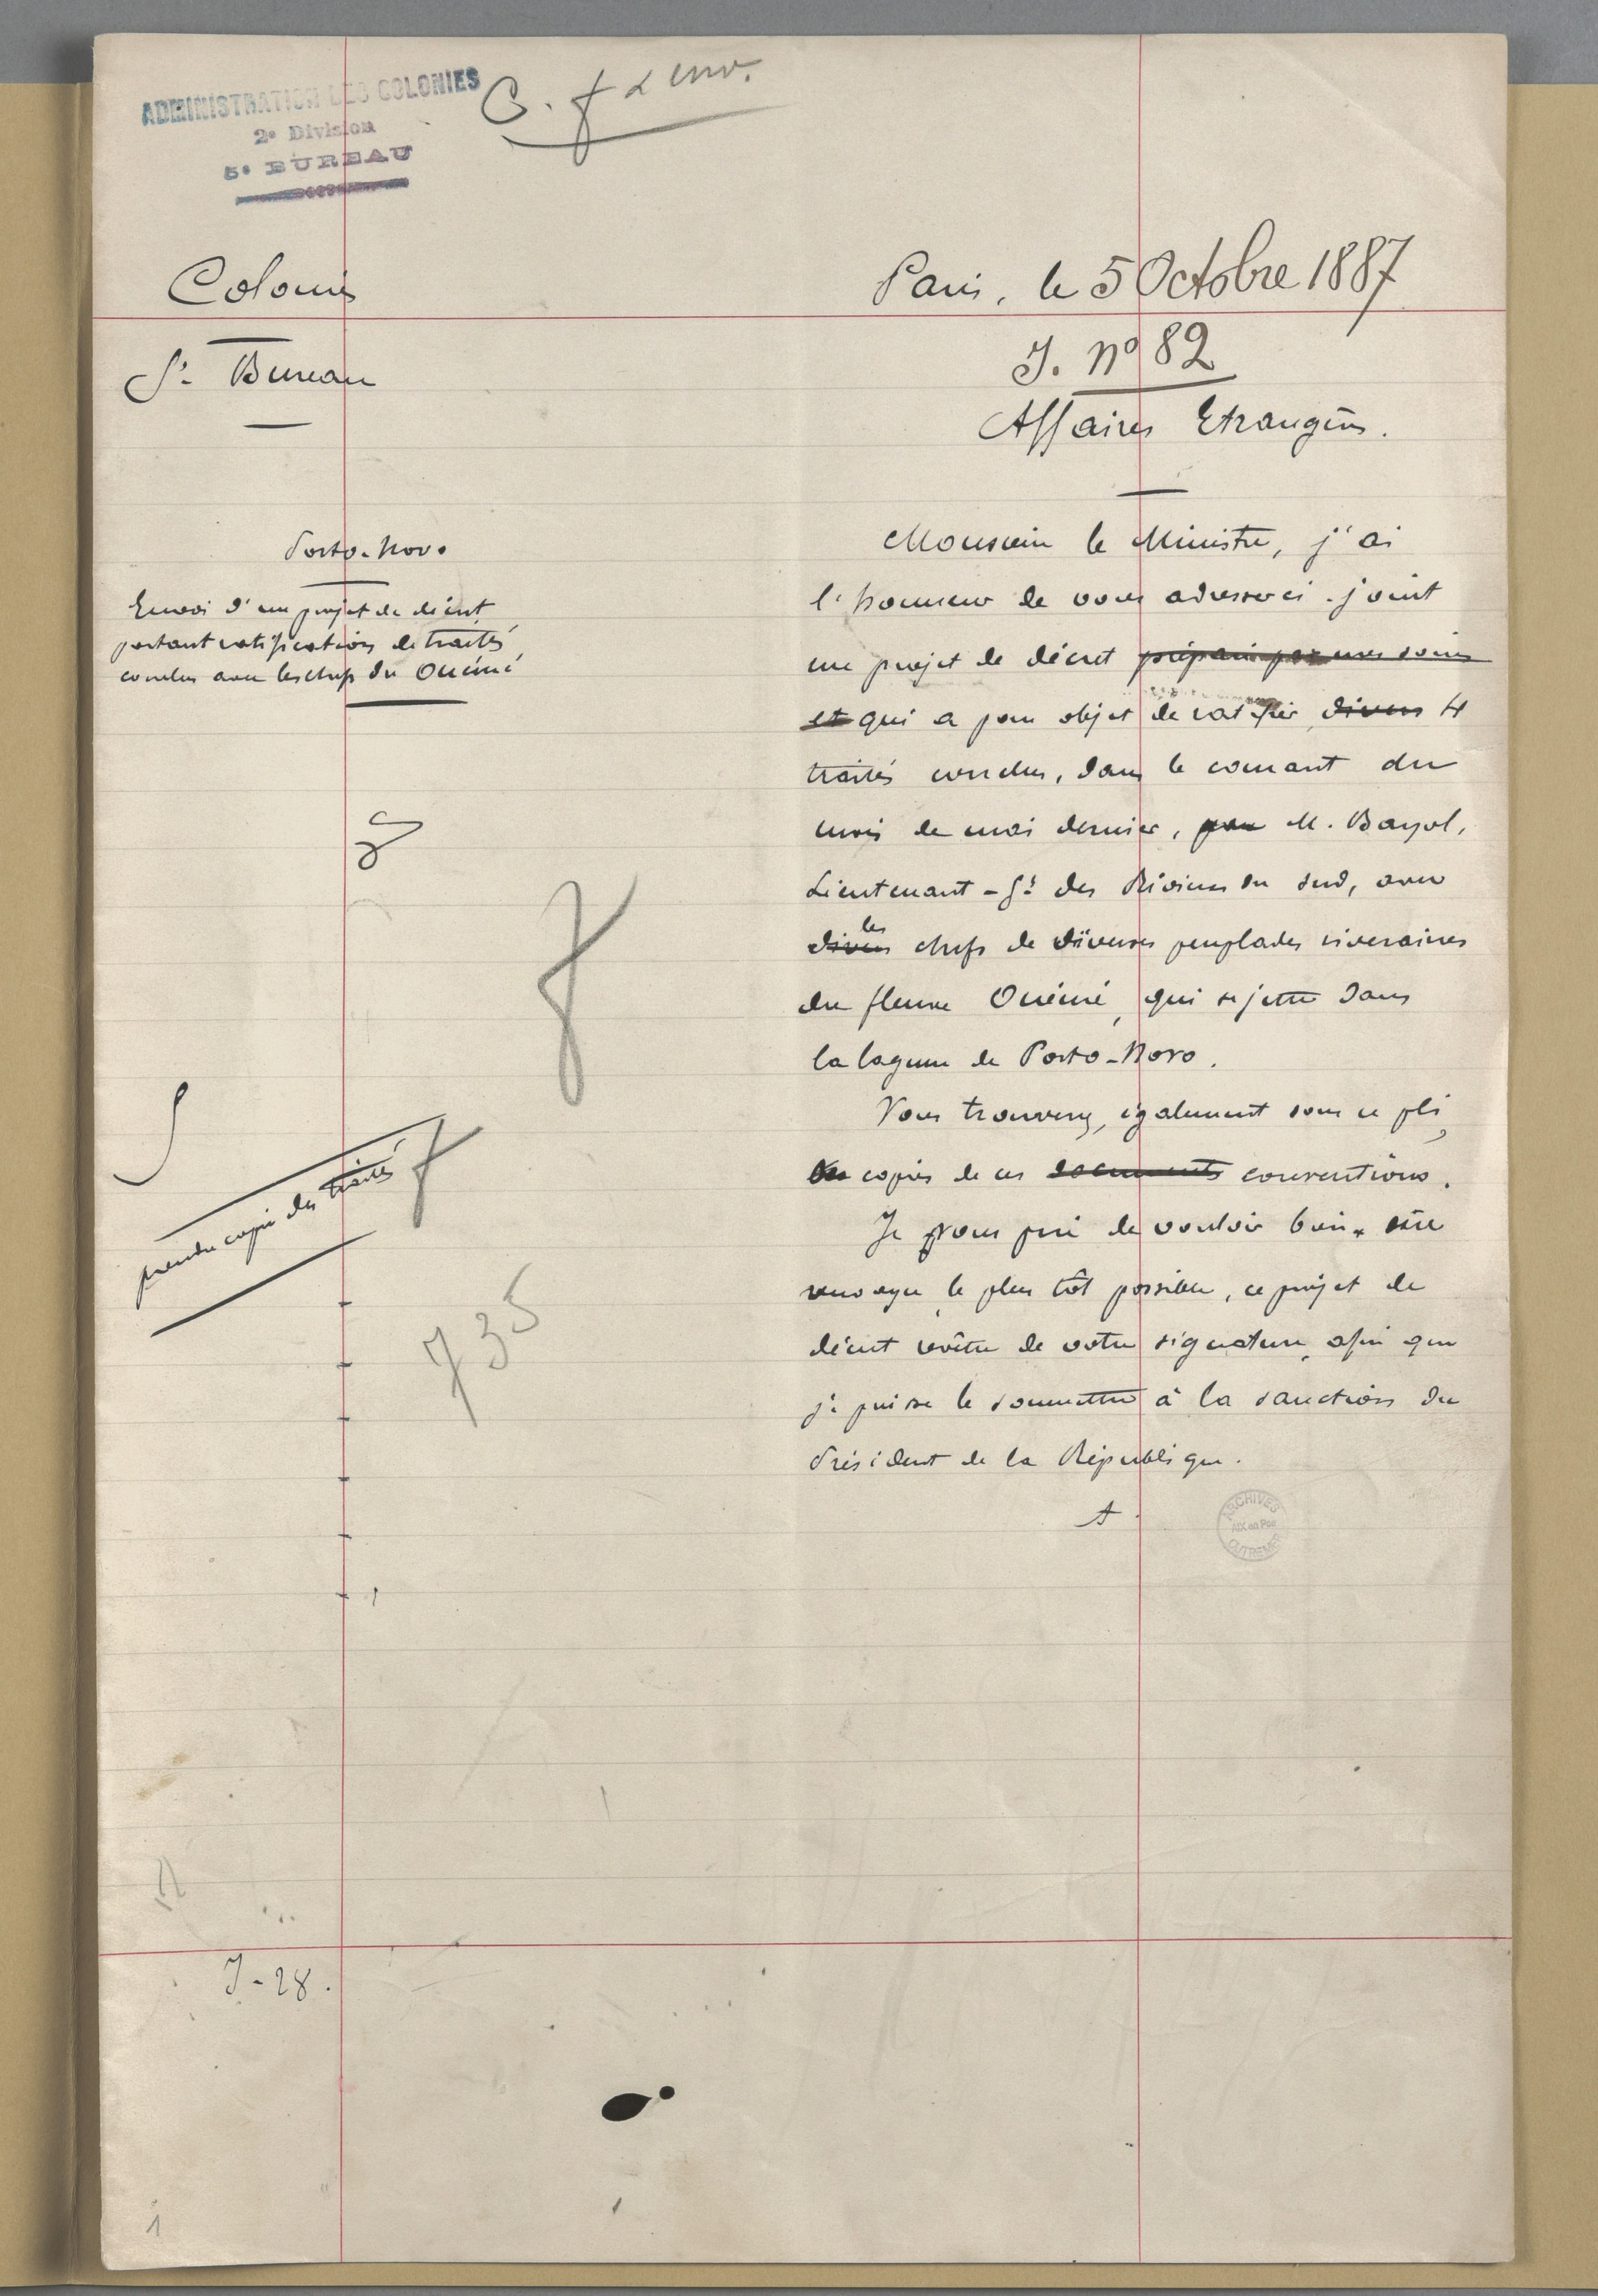 ADMINISTRATION DES COLONIES
2e Division
5e BUREAU
Colonies
5e Bureau
Porto-Novo
Envoi d'un projet de décret
portant ratification de traités
conclus avec les chefs du Ouémé
prendre copie des traités
735
J-28.
1
Paris, le 5 Octobre 1887
J. No 82
Affaires Etrangères.
Monsieur le Ministre, j'ai
l'honneur de vous adresser ci-joint
un projet de décret préparé par mes soins
et qui a pour objet de ratifier divers 4
traités conclus, dans le courant du
mois de mai dernier, par M. Bayol,
Lieutenant-Gr des Rivières du Sud, avec
divers les chefs de diverses peuplades riveraines
du fleuve Ouémé, qui se jette dans
la lagune de Porto-Novo.
Vous trouverez, également sous ce pli,
copies de ces documents conventions.
Je vous prie de vouloir bien me
renvoyer le plus tôt possible, ce projet de
décret revêtu de votre signature, afin que
je puisse le soumettre à la sanction du
Président de la République.
ARCHIVES
AIX en Pce
OUTREMER